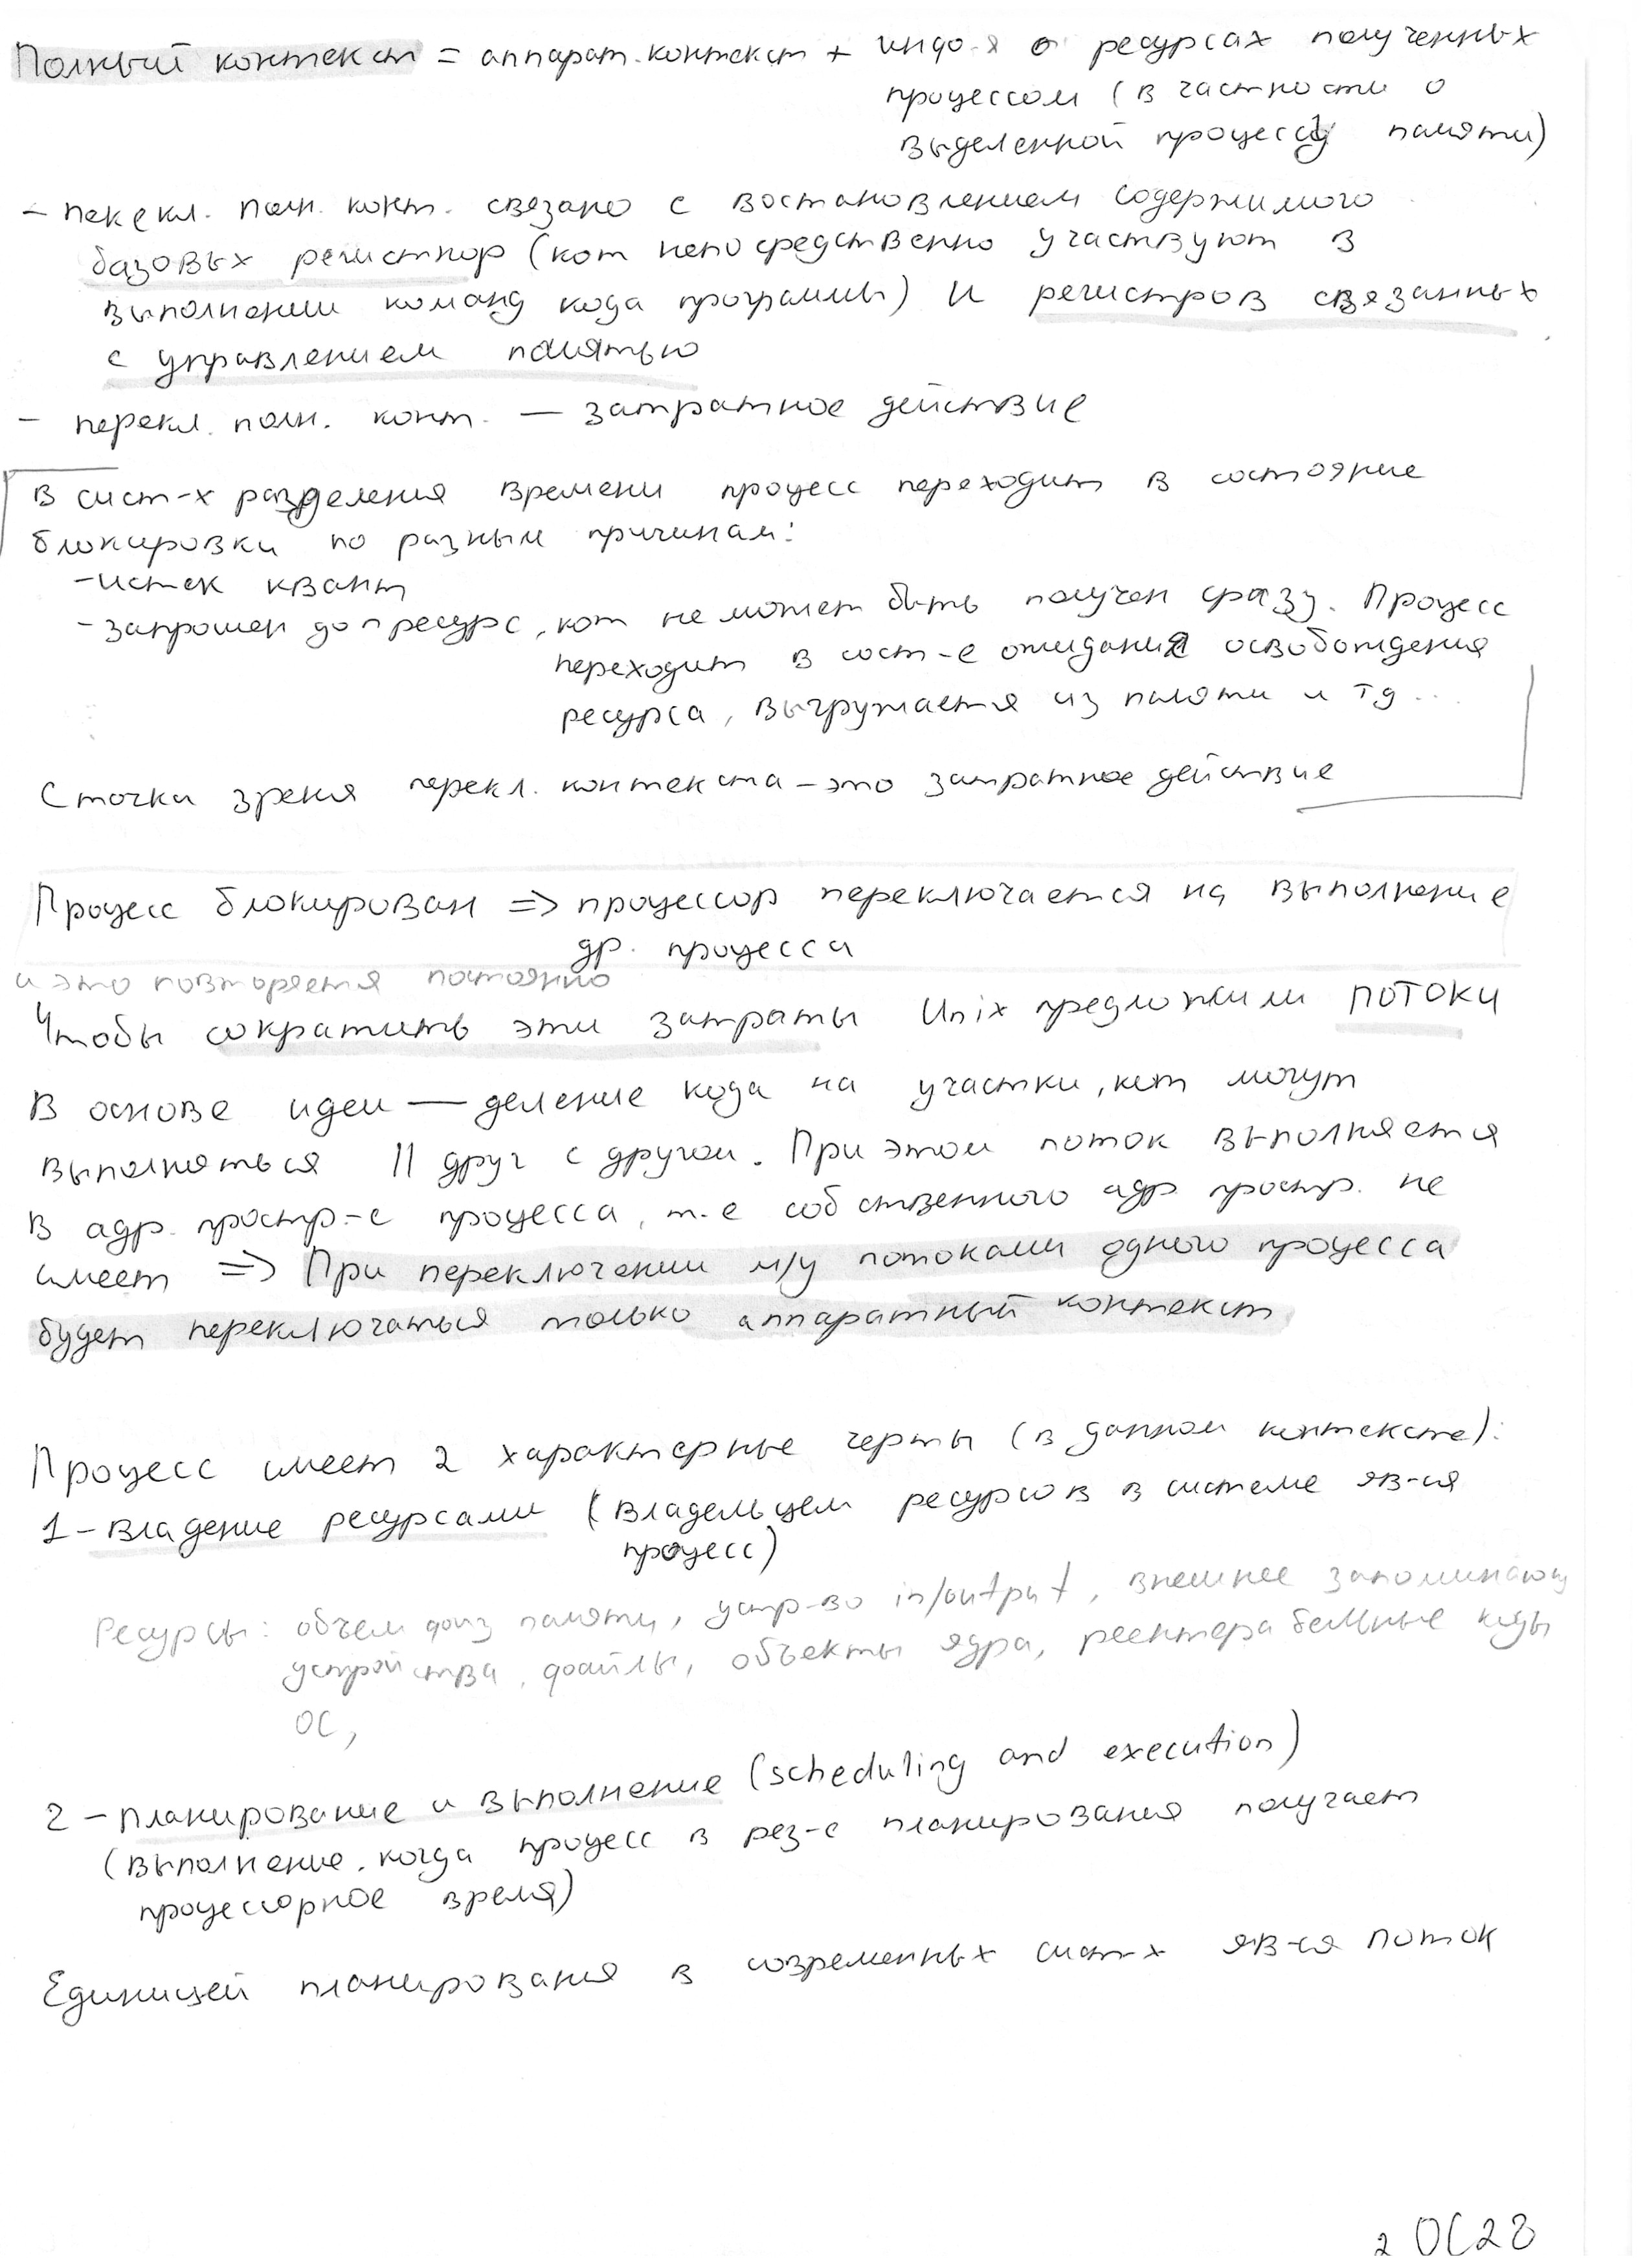 Полный контекст = аппарат. контекст + инфо-я о ресурсах полученных
процессом (в частности о
выделенной процессу памяти)
- пекекл. полн. конт. связано с востановлением содержимого
базовых регистров (кот непосредственно участвуют в
выполнении команд кода программы) и регистров связанных
с управлением памятью
- перекл. полн. конт. — затратное действие
В сист-х разделения времени процесс переходит в состояние
блокировки по разным причинам:
- истек квант
- запрошен доп ресурс, кот не может быть получен сразу. Процесс
переходит в сост-е ожидания освобождения
ресурса, выгружается из памяти и тд...
С точки зрения перекл. контекста - это затратное действие
Процесс блокирован => процессор переключается на выполнение
др. процесса
и это повторяется постоянно
Чтобы сократить эти затраты Unix предложили ПОТОКИ
В основе идеи — деление кода на участки, кот могут
выполняться || друг с другом. При этом поток выполняется
в адр. простр-е процесса, т.е собственного адр простр. не
имеет => При переключении м/у потоками одного процесса
будет переключаться только аппаратный контекст
Процесс имеет 2 характерные черты (в данном контексте):
1 - владение ресурсами (владельцем ресурсов в системе яв-ся
процесс)
Ресурсы: объем физ памяти, устр-во in/output, внешнее запоминающ
устройства, файлы, объекты ядра, реентерабельные коды
ОС,
2 - планирование и выполнение (scheduling and execution)
(выполнение, когда процесс в рез-е планирования получает
процессорное время)
Единицей планирования в современных сист-х яв-ся поток
2 ОС28